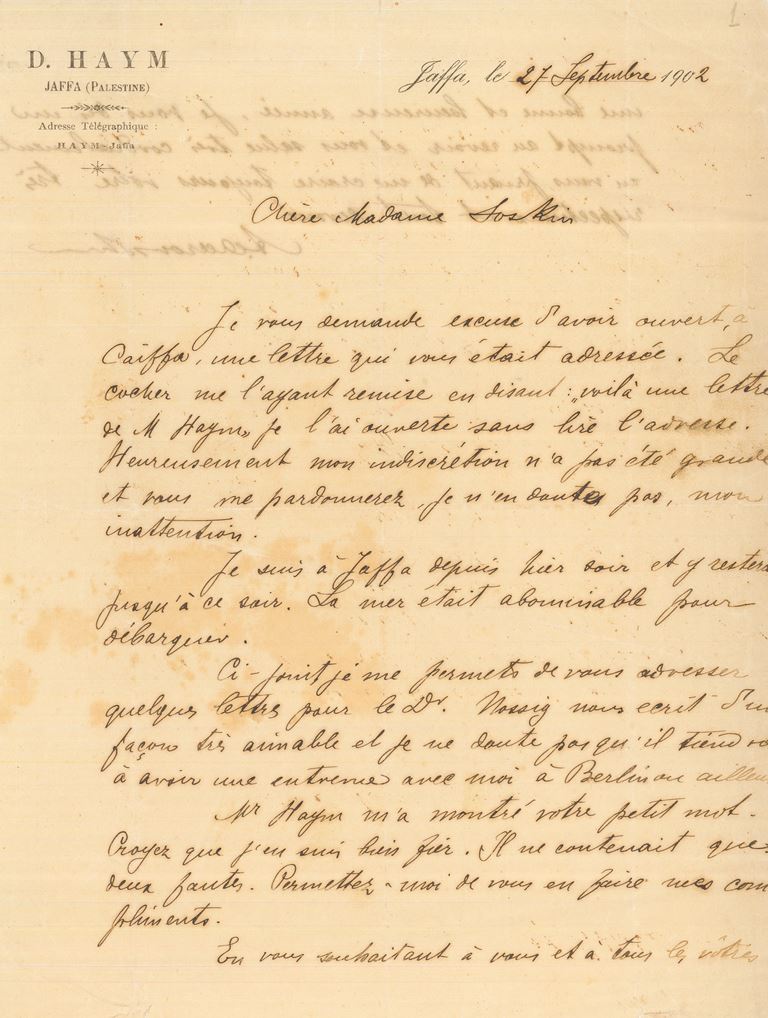 1
D. HAYM
JAFFA (PALESTINE)
Adresse Télégraphique :
HAYM-Jaffa
Jaffa, le 27 Septembre 1902
Chère Madame Soskin
Je vous demande excuse d'avoir ouvert, à
Caïffa, une lettre qui vous était adressée. Le
cocher me l'ayant remise en disant : „voilà une lettre
de M Haym„ je l'ai ouverte sans lire l'adresse.
Heureusement mon indiscrétion n'a pas été grande
et vous me pardonnerez, je n'en doute pas, mon
inattention.
Je suis à Jaffa depuis hier soir et y
jusqu'à ce soir. La mer était abominable pour
débarquer.
Ci-joint je me permets de vous adresser
quelques lettres pour le Dr. Nossig nous ecrit
façon très aimable et je ne doute pas qu'il
à avoir une entrevue avec moi à Berlin ou
Mr Haym m'a montré votre petit mot.
Croyez que j'en suis bien fier. Il ne contenait que
deux fautes. Permettez-moi de vous en faire mes com
pliments.
En vous souhaitant à vous et à tous les vôtres